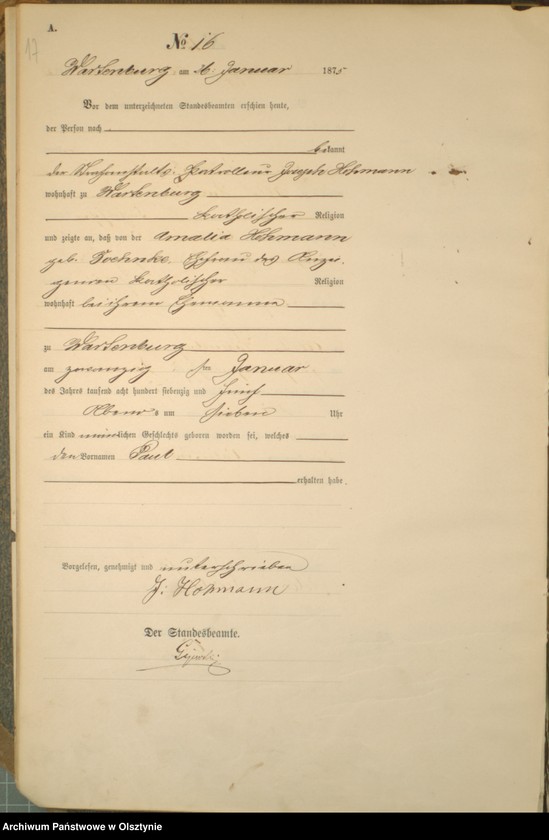 A.
17
No 16
Wartenburg am Januar 1875
Vor dem unterzeichneten Standesbeamten erschien heute,
der Person nach
bekannt
der Controlleur Joseph Hohmann
wohnhaft zu Wartenburg
katholischer Religion
und zeigte an, daß von der Amalia Hohmann
geb. Ehefrau des Anzei-
genden katholischer Religion
wohnhaft bei ihrem Ehemanne
zu Wartenburg
am zwanzig Januar
des Jahres tausend acht hundert siebenzig und fünf
Abends um sieben Uhr
ein Kind männlichen Geschlechts geboren worden sei, welches
den Vornamen Paul
erhalten habe.
Vorgelesen, genehmigt und unterschrieben
J: Hohmann
Der Standesbeamte.
Archiwum Państwowe w Olsztynie